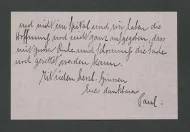 und nicht im Spital und wir haben die
Hoffnung noch nicht ganz aufgegeben, dass
mit guter Ruhe und Schonung die Sache
noch gerettet werden kann.
Mit lieben herzl. Grüssen
Eure dankbare
Paul.